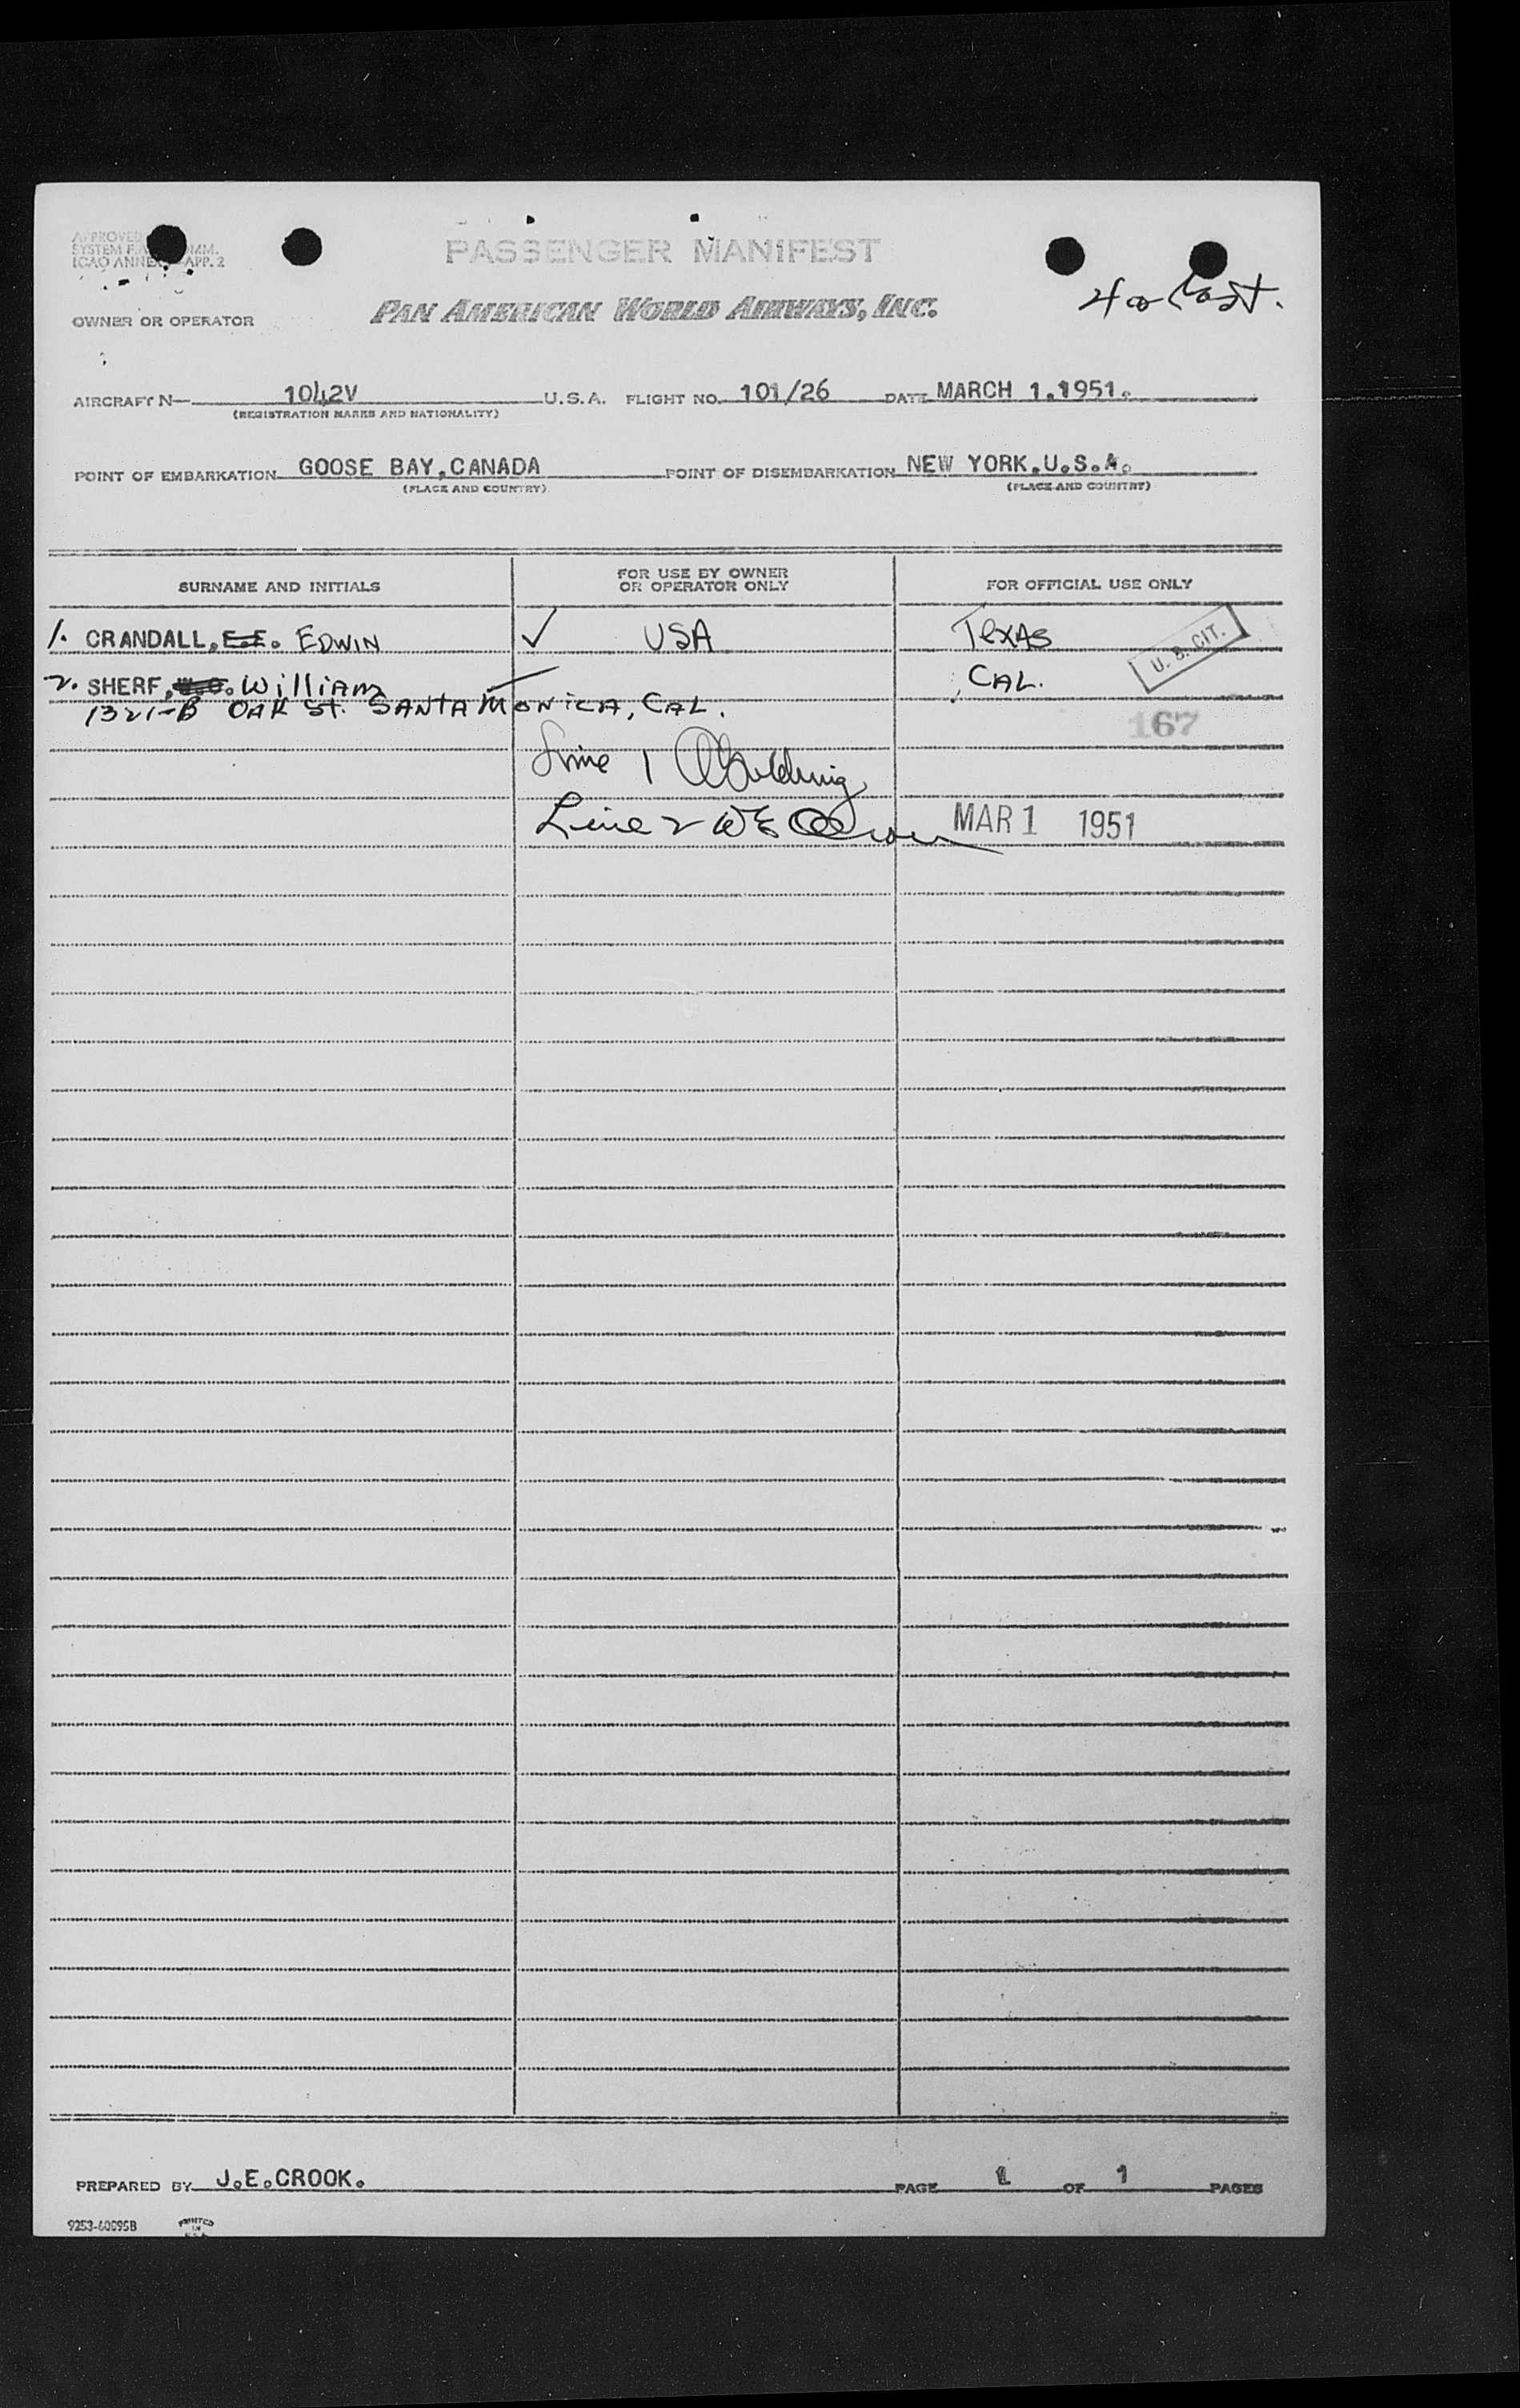 PASSENGER MANIFEST
APPROVED
SYSTEM COMM.
ICAO ANNEX APP. 2
PAN AMERICAN WORLD AIRWAYS, INC.
OWNER OR OPERATOR
AIRCRAFT N— 1042V U.S.A. FLIGHT NO. 101/26 DATE MARCH 1.1951.
(REGISTRATION MARKS AND NATIONALITY)
POINT OF EMBARKATION GOOSE BAY, CANADA POINT OF DISEMBARKATION NEW YORK.U.S.A.
(PLACE AND COUNTRY) (PLACE AND COUNTRY)
SURNAME AND INITIALS
FOR USE BY OWNER
OR OPERATOR ONLY
FOR OFFICIAL USE ONLY
1. CRANDALL, E.E. EDWIN ✓ USA TEXAS U. S. CIT.
2. SHERF, William CAL.
1321-B OAK St. SANTA MONICA, CAL.
167
Line 1
Line 2 WE
MAR 1 1951
PREPARED BY J.E.CROOK. PAGE 1 OF 1 PAGES
9253-60095B PRINTED
IN
U.S.A.